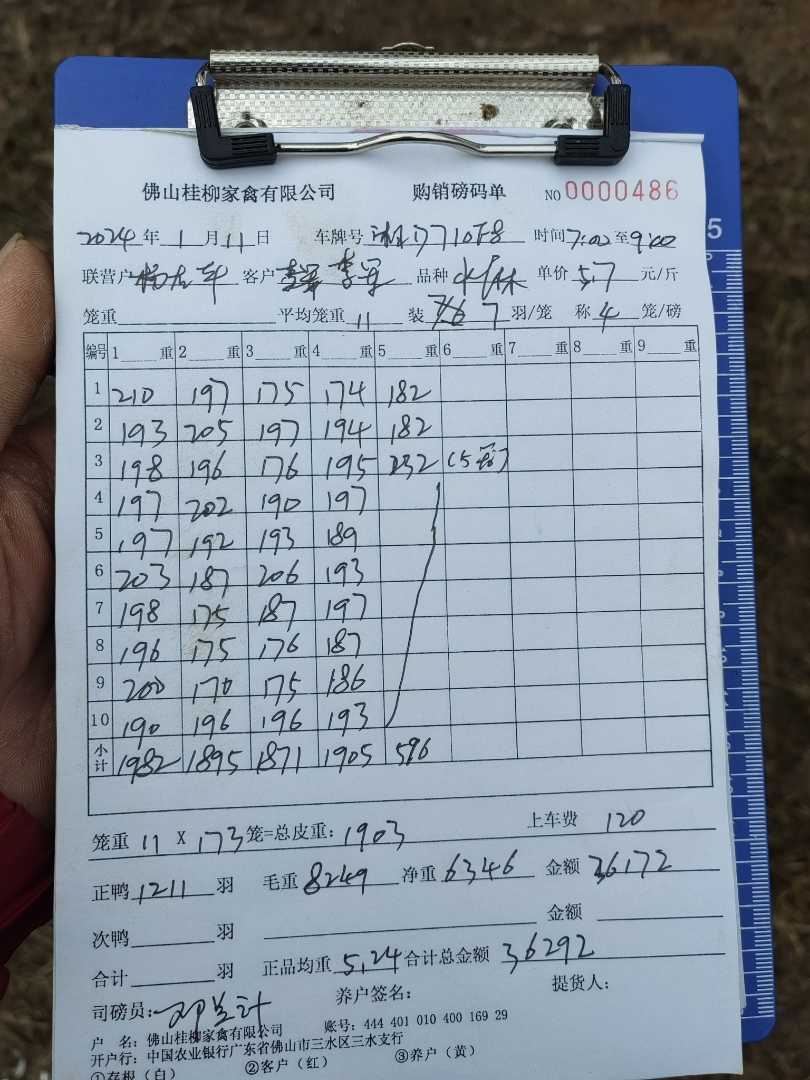 佛山桂柳家禽有限公司 购销磅码单 NO 0000486
2024 年 1 月 11 日 车牌号 时间 7:00 至 9:00
联营户 客户 李军 品种 单价 5.7 元/斤
笼重 平均笼重 11 装 7 羽/笼 称 4 笼/磅
编号 1 重 2 重 3 重 4 重 5 重 6 重 7 重 8 重 9 重
1 210 197 175 174 182
2 193 205 197 194 182
3 198 196 176 195 232 (5笼)
4 197 202 190 197
5 197 192 193 189
6 203 187 206 193
7 198 175 187 197
8 196 175 176 187
9 200 170 175 186
10 190 196 196 193
小计 1982 1895 1871 1905 596
笼重 11 X 173 笼=总皮重: 1903 上车费 120
正鸭 1211 羽 毛重 8249 净重 6346 金额 36172
次鸭 羽 金额
合计 羽 正品均重 5.24 合计总金额 36292
司磅员: 养户签名: 提货人:
户 名: 佛山桂柳家禽有限公司 账号: 444 401 010 400 169 29
开户行: 中国农业银行广东省佛山市三水区三水支行
①存根（白） ②客户（红） ③养户（黄）